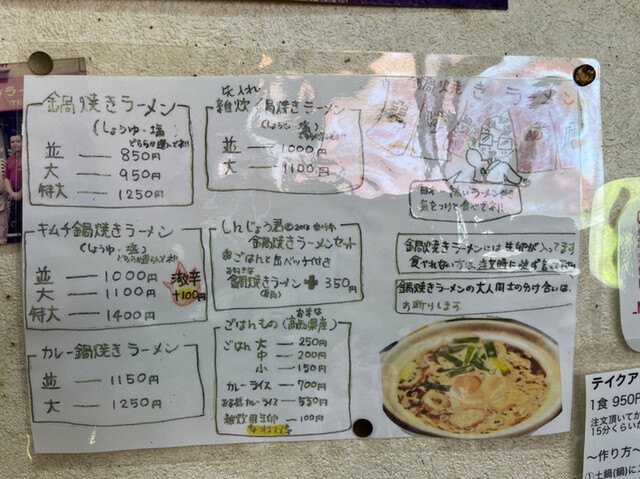 鍋焼きラーメン
(しょうゆ・塩)
並 ― 850円
大 ― 950円
特大 ― 1250円
雑炊 鍋焼きラーメン
(しょうゆ・塩)
並 ― 1000円
大 ― 1100円
鍋焼きラーメン
キムチ鍋焼きラーメン
(しょうゆ・塩)
並 ― 1000円
大 ― 1100円
特大 ― 1400円
激辛
+100円
しんじょう君
鍋焼きラーメンセット
ごはんと缶バッチ付き
鍋焼きラーメン + 350円
鍋焼きラーメンには生卵が入ってます
鍋焼きラーメンの大人同士の分け合いは、
お断りします
カレー鍋焼きラーメン
並 ― 1150円
大 ― 1250円
ごはんもの(高知県産)
ごはん 大 ― 250円
中 ― 200円
小 ― 150円
カレーライス ― 700円
― 550円
雑炊用玉卵 ― 100円
テイクア
1食 950円
注文頂いてか
15分くらいか
～作り方～
①土鍋(鍋)に